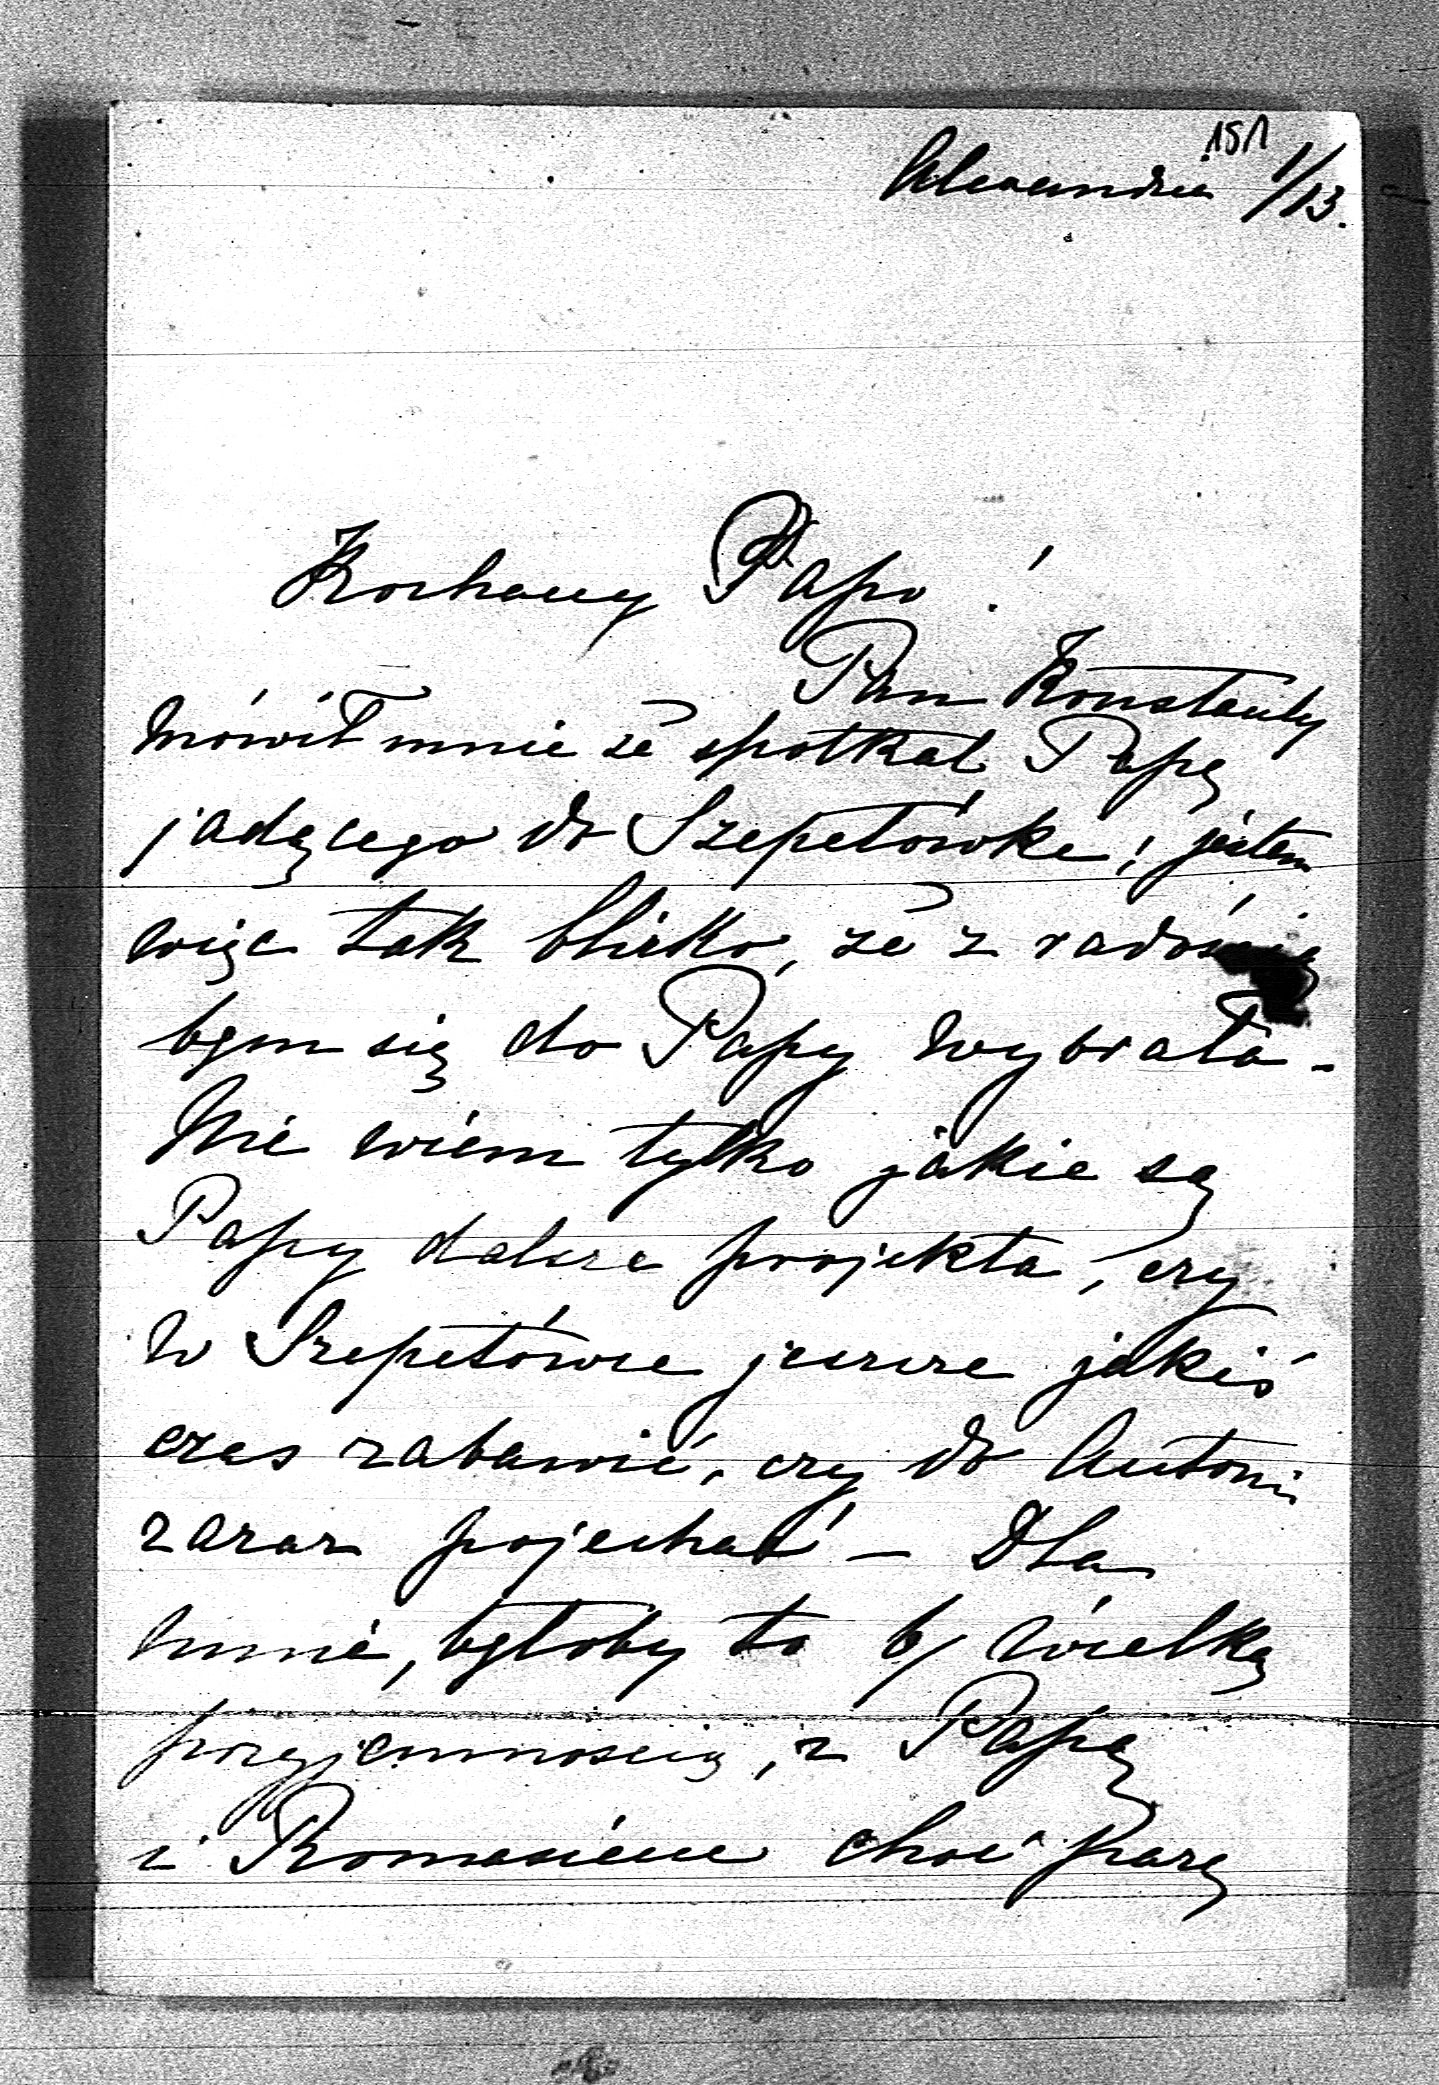 151
Alexandria 1/13.
Kochany Papo!
Pan Konstanty
mówił mnie że spotkał Papę
jadącego do Szepetówke; jestem
więc tak blisko, że z radością
bym się do Papy wybrała -
Nie wiem tylko jakie są
Papy dalsze projekta, czy
w Szepetówce jeszcze jakiś
czas zabawić, czy do Antonin
zaraz pojechać - Dla
mnie, byłoby to b/ wielką
przyjemnoscią, z Papą
i Romasiem choć parę